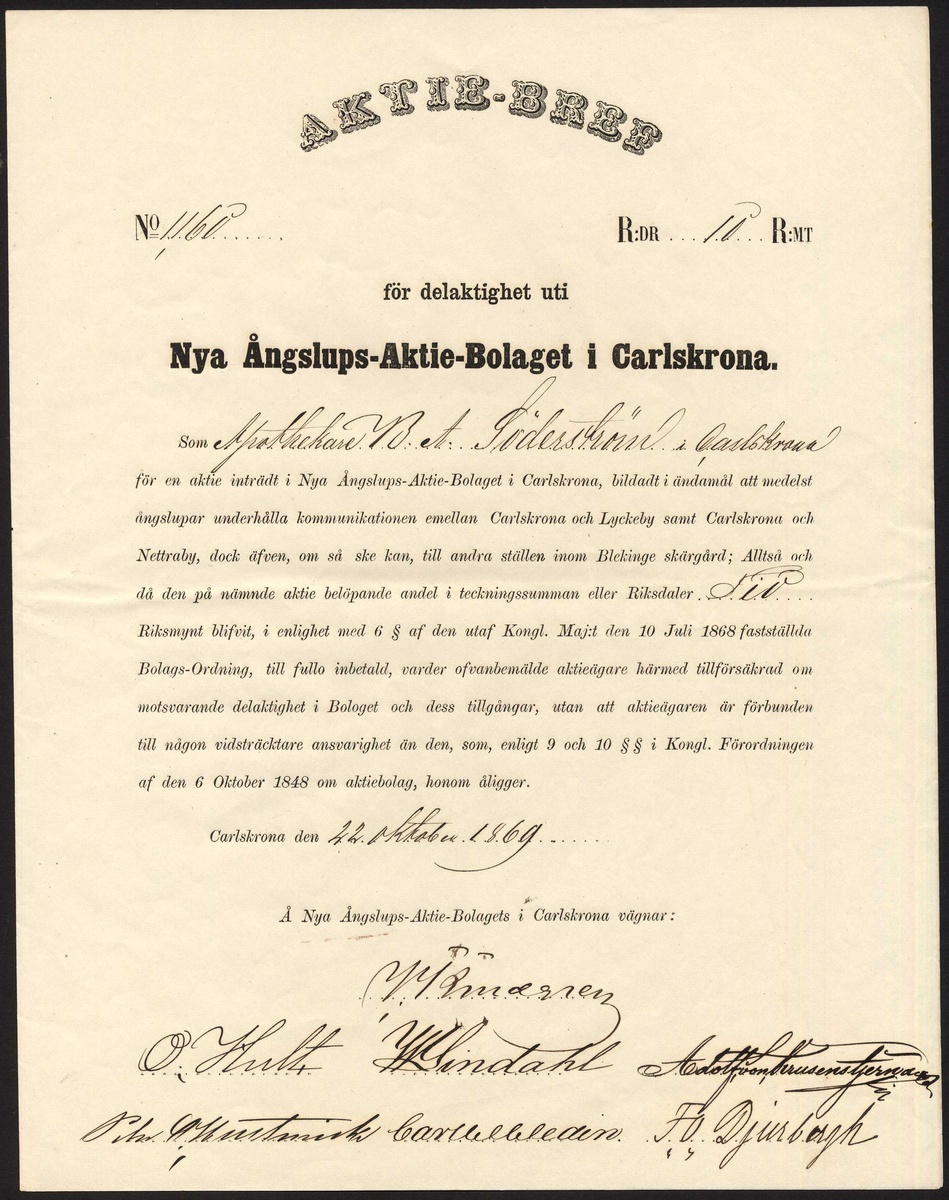 AKTIE-BREF
No 1160
R:DR 10 R:MT
för delaktighet uti
Nya Ångslups-Aktie-Bolaget i Carlskrona.
Som Apothekare B. A. Söderström i Carlskrona
för en aktie inträdt i Nya Ångslups-Aktie-Bolaget i Carlskrona, bildadt i ändamål att medelst
ångslupar underhålla kommunikationen emellan Carlskrona och Lyckeby samt Carlskrona och
Nettraby, dock äfven, om så ske kan, till andra ställen inom Blekinge skärgård; Alltså och
då den på nämnde aktie belöpande andel i teckningssumman eller Riksdaler Tio
Riksmynt blifvit, i enlighet med 6 § af den utaf Kongl. Maj:t den 10 Juli 1868 fastställda
Bolags-Ordning, till fullo inbetald, varder ofvanbemälde aktieägare härmed tillförsäkrad om
motsvarande delaktighet i Bologet och dess tillgångar, utan att aktieägaren är förbunden
till någon vidsträcktare ansvarighet än den, som, enligt 9 och 10 § § i Kongl. Förordningen
af den 6 Oktober 1848 om aktiebolag, honom åligger.
Carlskrona den 22 oktober 1869
Å Nya Ångslups-Aktie-Bolagets i Carlskrona vägnar:
O. Hult W Lindahl Adolf von Krusenstjerna
F. O. Djurbergh